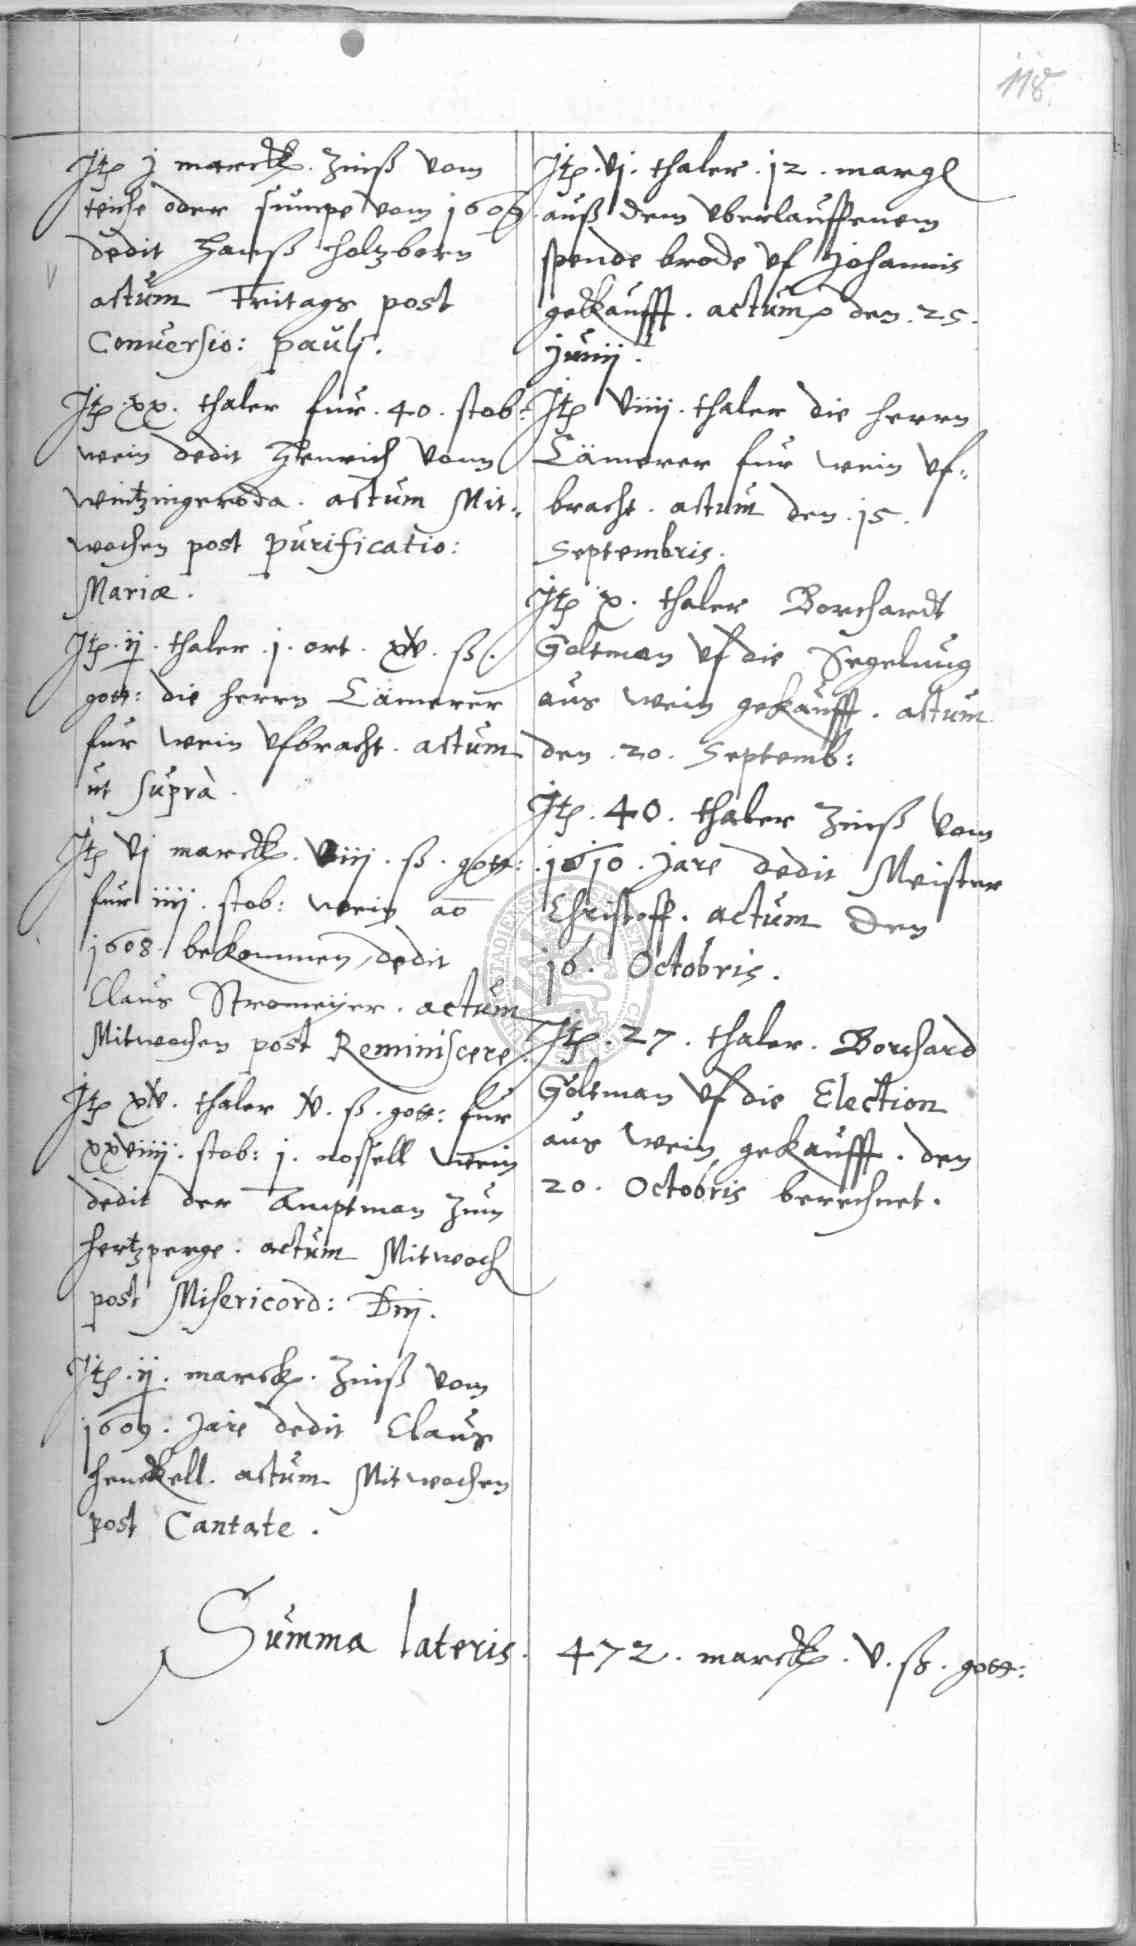 118.
Jtē j marck. Zinß vom
teiche oder sumpe vom 1609.
dedit Hanß Holtzborn
actum Fritags post
Conversio: paulj.
Jtē xx. thaler fur. 40. stob:
wein dedit Henrich vonn
Wintzingeroda. actum Mit-
wochen post purificatio:
Mariæ.
Jtē. ij. thaler. j. ort. xv. ß.
gott: die herrn Cämerer
fur wein vfbracht. actum
ut suprà.
Jtē vj marck. viij. ß. gott:
fur iiij. stob: wein aō
1608 bekommen, dedit
Claus Stromeyer. actum
Mitwochen post Reminiscere.
Jtē xv. thaler v. ß. gott: fur
xxviiij. stob: j. nossell wein
dedit der Amptman zum
Hertzperge. actum Mitwoch
post Misericord: Dnj.
Jtē. ij. marck. Zinß vom
1609. Jare dedit Claus
Henckell. actum Mitwochen
post Cantate.
Jtē. vj. thaler. 12. margl
auß dem vberlauffenem
spende brode vf Johannis
gekaufft. actum den. 25.
Junij.
Jtē viiij. thaler die herrn
Cämerer fur wein vf-
bracht. actum den. 15.
Septembris.
Jtē x. thaler Borchardt
Goltman vf die Segelung
aus wein gekaufft. actum
den. 20. Septemb:
Jtē. 40. thaler Zinß vom
1610. Jare dedit Meister
Christoff. actum den
16. Octobris.
Jtē. 27. thaler. Borchard
Goltman vf die Election
aus wein gekaufft. den
20. Octobris berechnet.
Summa lateris. 472. marck. v. ß. gott: